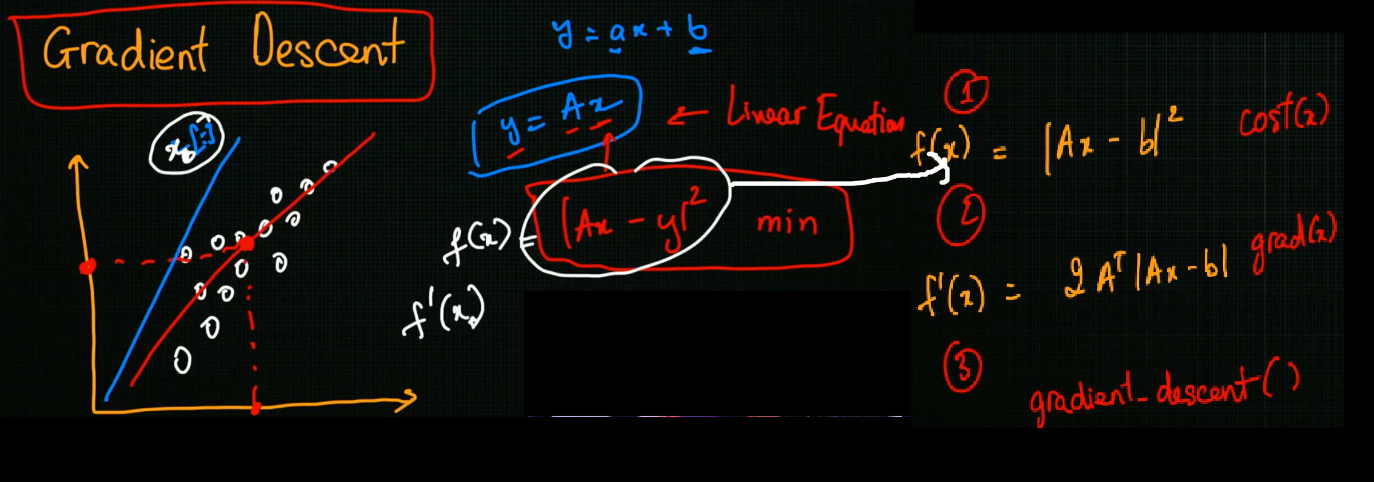 Gradient Descent
y = ax + b
y = Ax
← Linear Equation
f(x) = |Ax - y|² min
f'(x₀)
x₀
①
f(x) = |Ax - b|² cost(x)
②
f'(x) = 2 Aᵀ |Ax - b| grad(x)
③
gradient_descent()